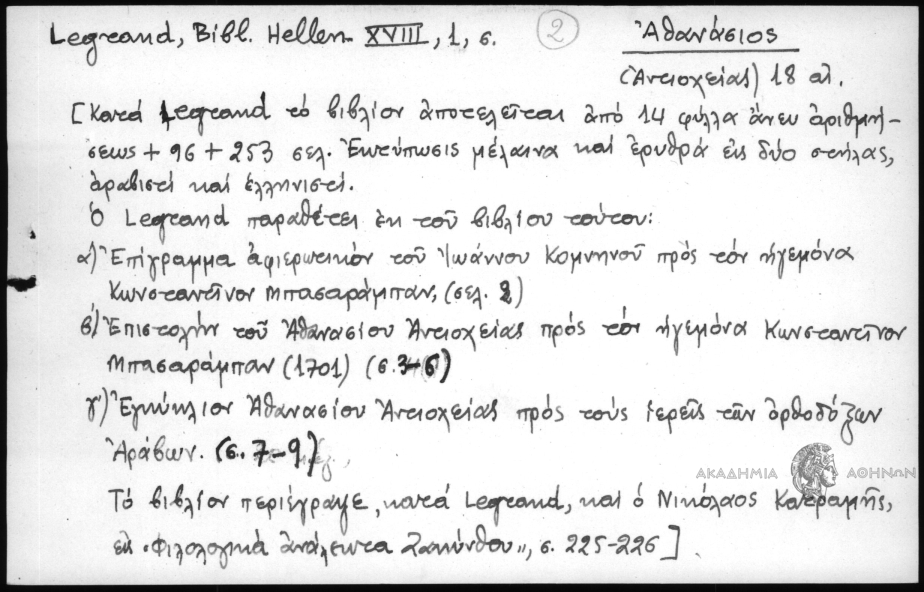 Legrand, Bibl. Hellen. XVIII, 1, σ. 2 Ἀθανάσιος
(Ἀντιοχείας) 18 αἰ.
[Κατά Legrand τό βιβλίον ἀποτελεῖται ἀπό 14 φύλλα ἄνευ ἀριθμή-
σεως + 96 + 253 σελ. Ἐκτύπωσις μέλαινα καί ἐρυθρά εἰς δύο στήλας,
ἀραβιστί καί ἑλληνιστί.
Ὁ Legrand παραθέτει ἐκ τοῦ βιβλίου τούτου:
α) Ἐπίγραμμα ἀφιερωτικόν τοῦ Ἰωάννου Κομνηνοῦ πρός τόν ἡγεμόνα
Κωνσταντῖνον Μπασαράμπαν, (σελ. 2)
β) Ἐπιστολήν τοῦ Ἀθανασίου Ἀντιοχείας πρός τόν ἡγεμόνα Κωνσταντῖνον
Μπασαράμπαν (1701) (σ. 3-6)
γ) Ἐγκύκλιον Ἀθανασίου Ἀντιοχείας πρός τούς ἱερεῖς τῶν ὀρθοδόξων
Ἀράβων. (σ. 7-9)
ΑΚΑΔΗΜΙΑ ΑΘΗΝΩΝ
Τό βιβλίον περιέγραψε, κατά Legrand, καί ὁ Νικόλαος Κατραμῆς,
εἰς «Φιλολογικά ἀνάλεκτα Ζακύνθου», σ. 225-226].